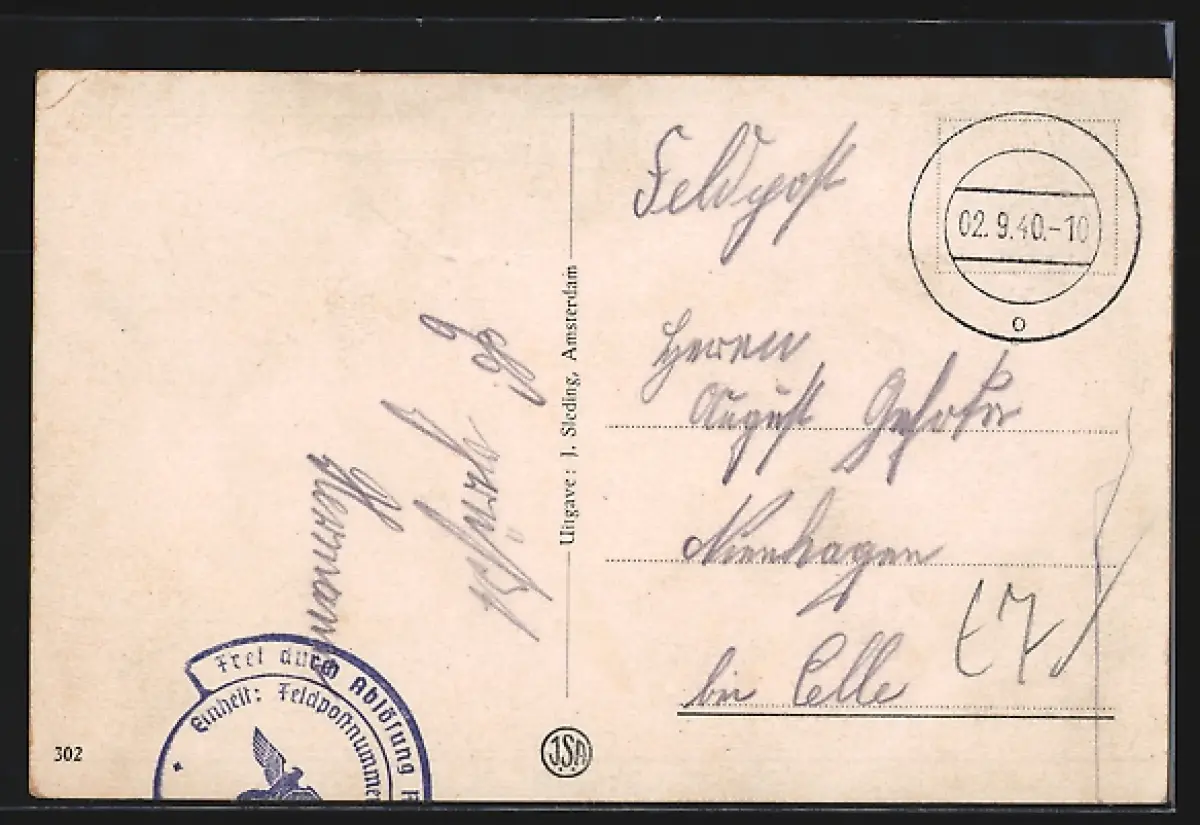 Feldpost
02. 9. 40. - 10
o
Herrn
August
Nienhagen
bei Celle
Uitgave: J. Sleding, Amsterdam
Hermann
Frei durch Ablösung
Einheit: Feldpostnummer
302
J.S.A